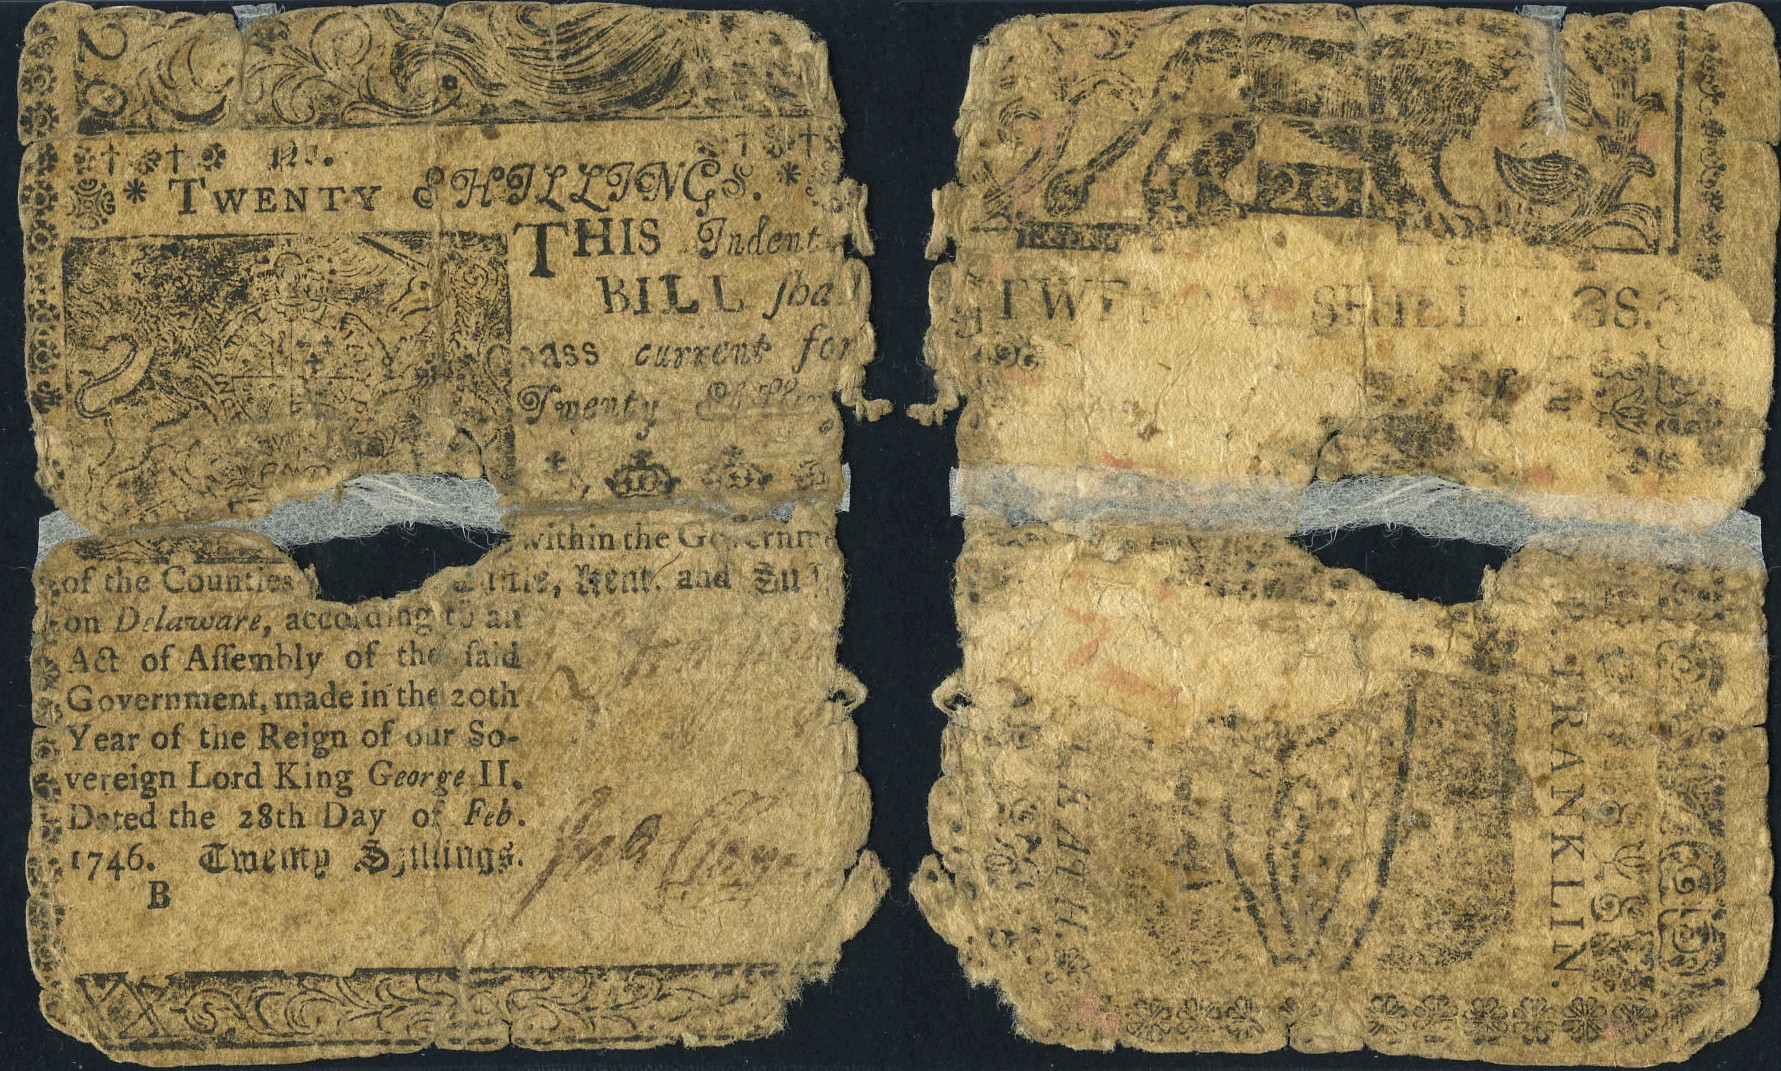 20
No.
TWENTY SHILLINGS.
THIS Indent
BILL ſhal
pass current for
Twenty Shillin
within the Governme
of the Counties
tle, Kent. and Su
on Delaware, according to an
Act of Aſſembly of the ſaid
Government, made in the 20th
Year of the Reign of our So-
vereign Lord King George II.
Dated the 28th Day of Feb.
1746. Twenty Shillings.
B
20
TWENTY SHILLINGS.
FRANKLIN.